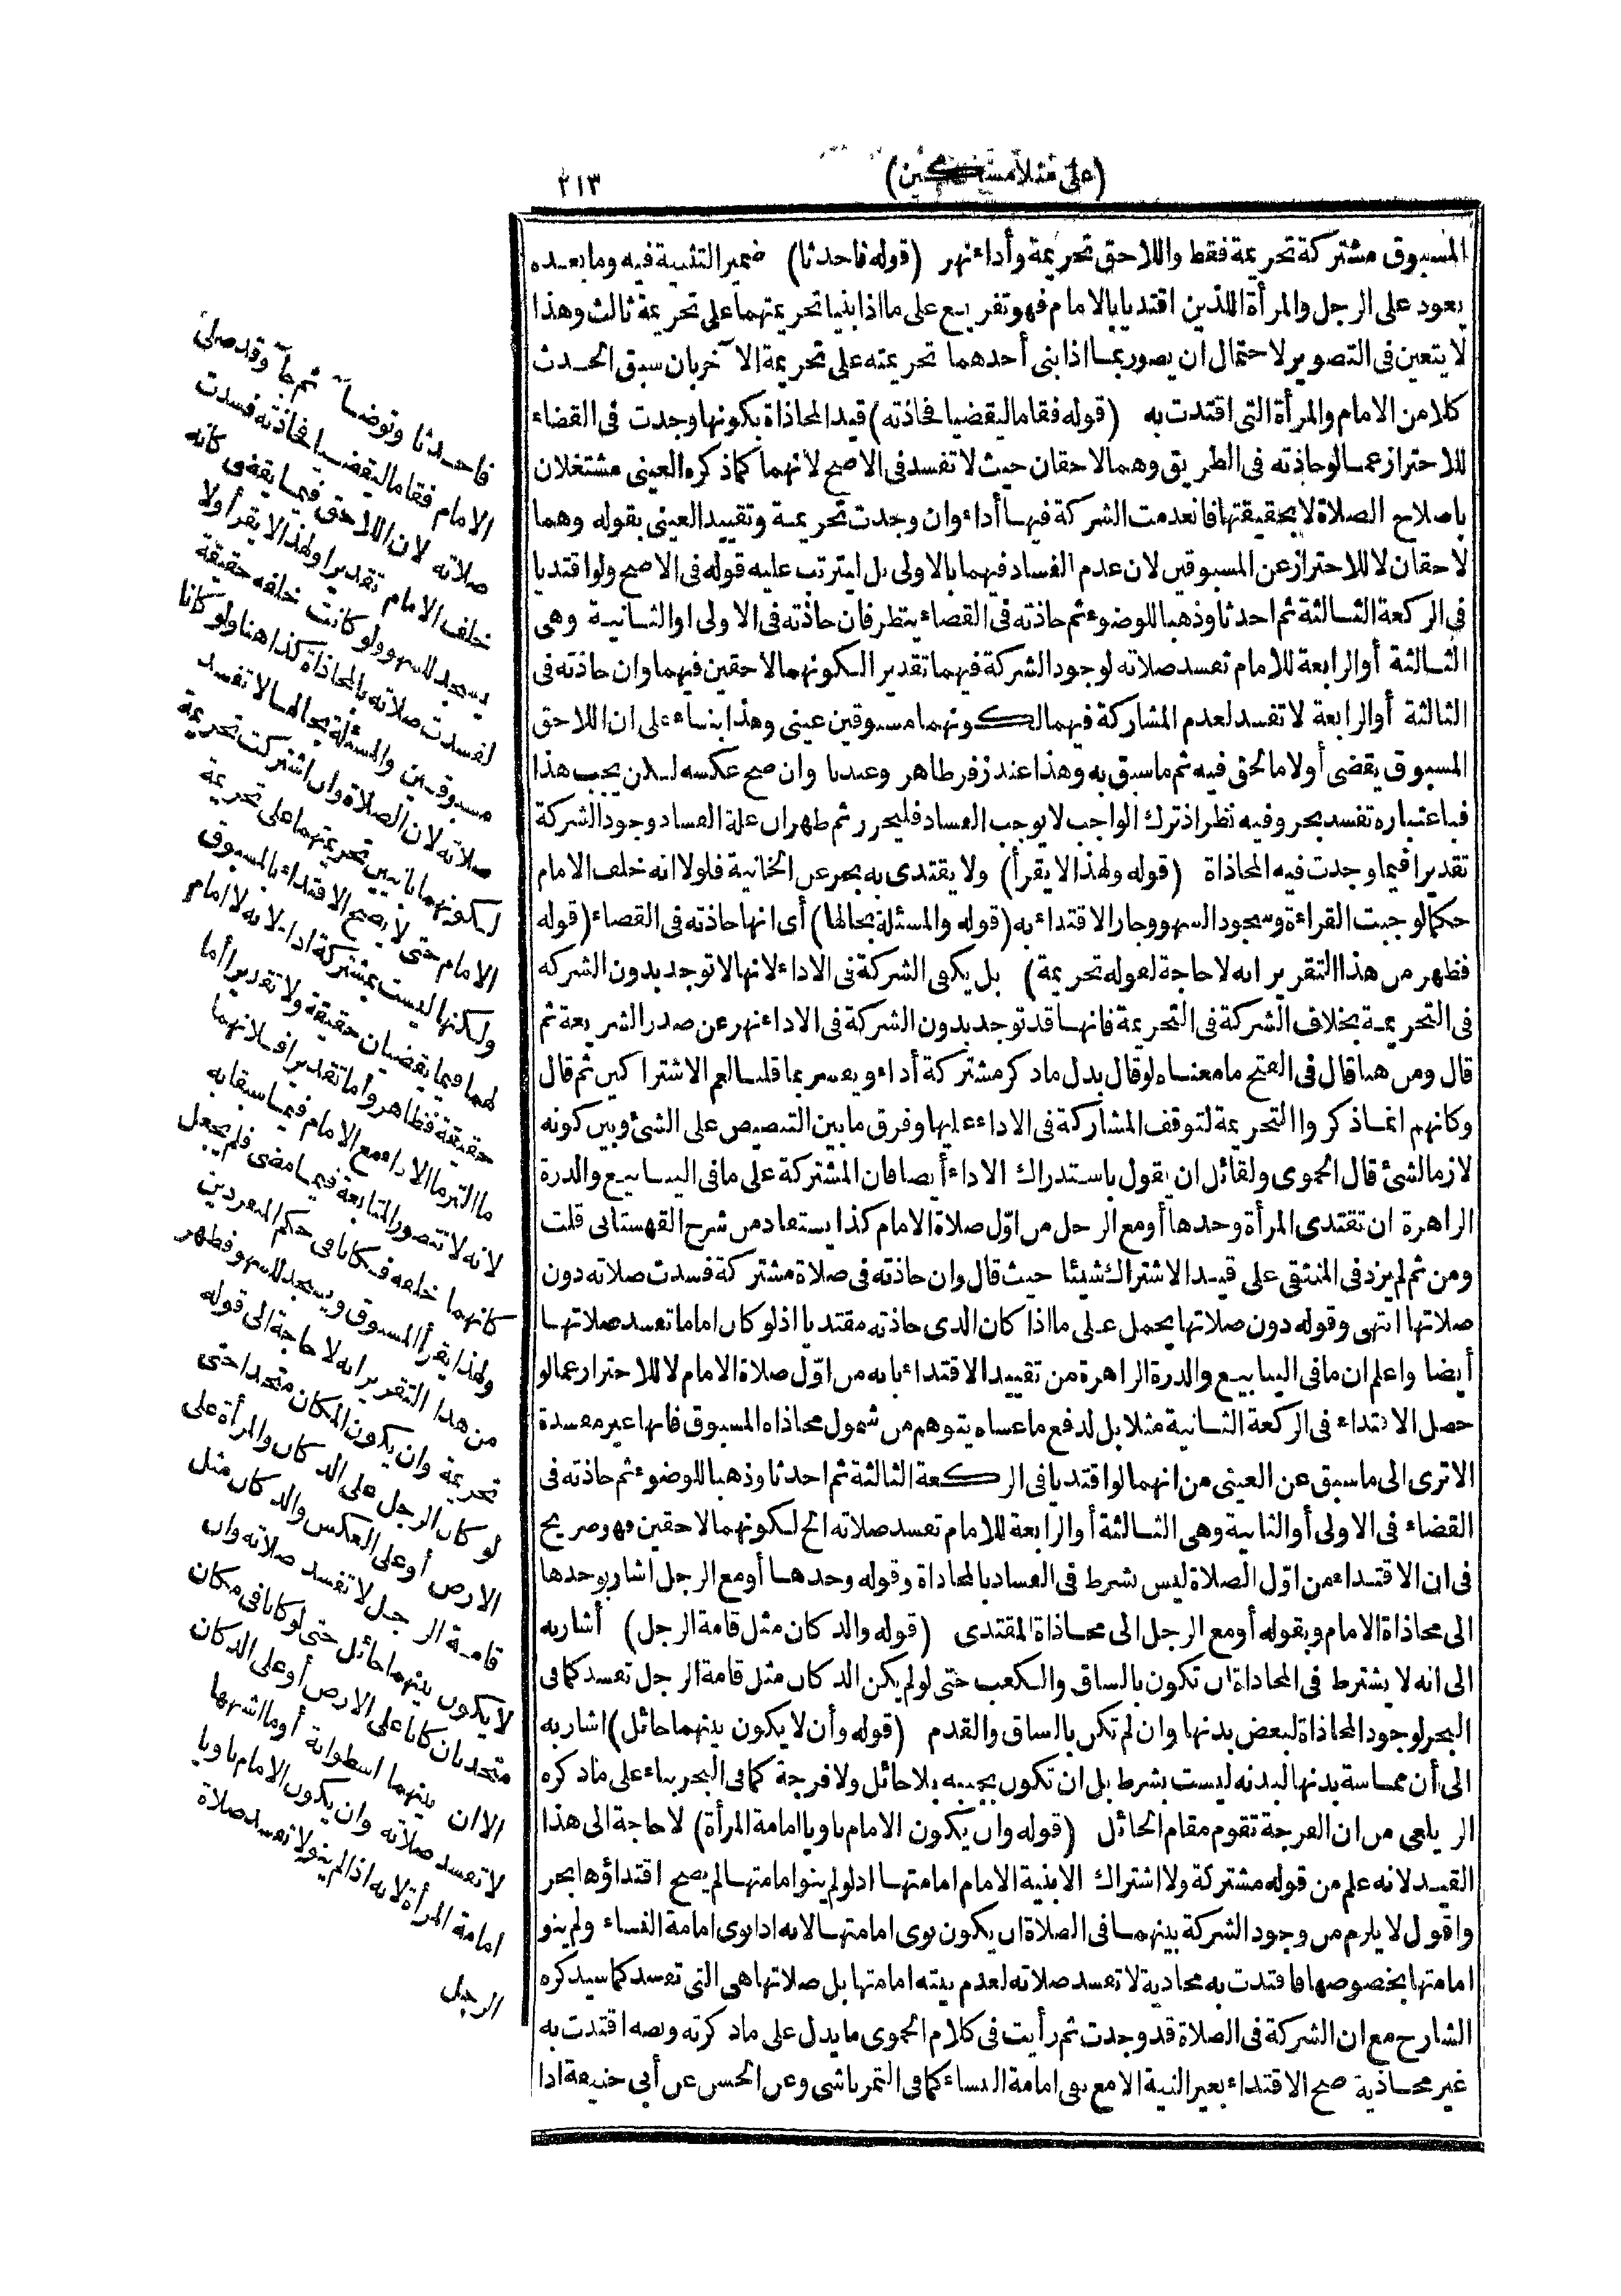 (على منلا مسكين) ٢١٣
المسبوق مشتركة تحريمة فقط واللاحق تحريمة وأداء نهر (قوله فاحدثا) ضمير التثنية فيه وما بعده
يعود على الرجل والمرأة اللذين اقتديا بالامام فهو تفريع على ما اذا بنيا تحريمتهما على تحريمة ثالث وهذا
لا يتعين فى التصوير لاحتمال ان يصور بما اذا بنى أحدهما تحريمته على تحريمة الآخر بان سبق الحدث
كلا من الامام والمرأة التى اقتدت به (قوله فقاما ليقضيا فحاذته) قيد المحاذاة بكونها وجدت فى القضاء
للاحتراز عما لو حاذته فى الطريق وهما لاحقان حيث لا تفسد فى الاصح لانهما كما ذكره العينى مشتغلان
باصلاح الصلاة لا بحقيقتها فانعدمت الشركة فيها أداء وان وجدت تحريمة وتقييد العينى بقوله وهما
لاحقان لا للاحتراز عن المسبوقين لان عدم الفساد فيهما بالاولى بل ليترتب عليه قوله فى الاصح ولو اقتديا
فى الركعة الثالثة ثم احدثا وذهبا للوضوء ثم حاذته فى القضاء ينظر فان حاذته فى الاولى او الثانية وهى
الثالثة أو الرابعة للامام تفسد صلاته لوجود الشركة فيهما تقديرا لكونهما لاحقين فيهما وان حاذته فى
الثالثة أو الرابعة لا تفسد لعدم المشاركة فيهما لكونهما مسبوقين عينى وهذا بناء على ان اللاحق
المسبوق يقضى أولا ما لحق فيه ثم ما سبق به وهذا عند زفر ظاهر وعندنا وان صح عكسه لكن يجب هذا
فباعتباره تفسد بحر وفيه نظر اذ ترك الواجب لا يوجب الفساد فليحرر ثم ظهر ان علة الفساد وجود الشركة
تقديرا فيما وجدت فيه المحاذاة (قوله ولهذا لا يقرأ) ولا يقتدى به بحر عن الخانية فلولا انه خلف الامام
حكما لوجبت القراءة وسجود السهو وجاز الاقتداء به (قوله والمسئلة بحالها) أى انها حاذته فى القضاء (قوله
فظهر من هذا التقرير انه لا حاجة لقوله تحريمة) بل يكفى الشركة فى الاداء لانها لا توجد بدون الشركة
فى التحريمة بخلاف الشركة فى التحريمة فانها قد توجد بدون الشركة فى الاداء نهر عن صدر الشريعة ثم
قال ومن هنا قال فى الفتح ما معناه لو قال بدل ما ذكر مشتركة أداء ويفسر بما قلنا لعم الاشتراكين ثم قال
وكانهم انما ذكروا التحريمة لتوقف المشاركة فى الاداء عليها وفرق ما بين التنصيص على الشئ وبين كونه
لازما لشئ قال الحموى ولقائل ان يقول باستدراك الاداء أيضا فان المشتركة على ما فى الينابيع والدرة
الزاهرة ان تقتدى المرأة وحدها أو مع الرجل من اول صلاة الامام كذا يستفاد من شرح القهستانى قلت
ومن ثم لم يزد فى المنتقى على قيد الاشتراك شيئا حيث قال وان حاذته فى صلاة مشتركة فسدت صلاته دون
صلاتها انتهى وقوله دون صلاتها يحمل على ما اذا كان الذى حاذته مقتديا اذ لو كان اماما تفسد صلاتها
أيضا واعلم ان ما فى الينابيع والدرة الزاهرة من تقييد الاقتداء بانه من اول صلاة الامام لا للاحتراز عما لو
حصل الاقتداء فى الركعة الثانية مثلا بل لدفع ما عساه يتوهم من شمول محاذاه المسبوق فانها غير مفسدة
الا ترى الى ما سبق عن العينى من انهما لو اقتديا فى الركعة الثالثة ثم احدثا وذهبا للوضوء ثم حاذته فى
القضاء فى الاولى أو الثانية وهى الثالثة أو الرابعة للامام تفسد صلاته الخ لكونهما لاحقين فهو صريح
فى ان الاقتداء من اول الصلاة ليس شرط فى الفساد بالمحاذاة وقوله وحدها أو مع الرجل اشار بوحدها
الى محاذاة الامام وبقوله أو مع الرجل الى محاذاة المقتدى (قوله والدكان مثل قامة الرجل) أشار به
الى انه لا يشترط فى المحاذاة ان تكون بالساق والكعب حتى لو لم يكن الدكان مثل قامة الرجل تفسد كما فى
البحر لوجود المحاذاة لبعض بدنها وان لم تكن بالساق والقدم (قوله وأن لا يكون بينهما حائل) اشار به
الى أن مماسة بدنها لبدنه ليست بشرط بل ان تكون بجنبه بلا حائل ولا فرجة كما فى البحر بناء على ما ذكره
الزيلعى من ان الفرجة تقوم مقام الحائل (قوله وان يكون الامام ناويا امامة المرأة) لا حاجة الى هذا
القيد لانه علم من قوله مشتركة ولا اشتراك الا بنية الامام امامتها اذ لو لم ينو امامتها لم يصح اقتداؤها بحر
واقول لا يلزم من وجود الشركة بينهما فى الصلاة ان يكون نوى امامتها لانه اذا نوى امامة النساء ولم ينو
امامتها بخصوصها فاقتدت به محاذية لا تفسد صلاته لعدم نيته امامتها بل صلاتها هى التى تفسد كما سيذكره
الشارح مع ان الشركة فى الصلاة قد وجدت ثم رأيت فى كلام الحموى ما يدل على ما ذكرته ونصه اقتدت به
غير محاذية صح الاقتداء بغير النية الا مع نفى امامة النساء كما فى التمرتاشى وعن الحسن عن أبى حنيفة اذا
فاحدثا وتوضآ ثم جآ وقد صلى
الامام فقاما ليقضيا فحاذته فسدت
صلاته لان اللاحق فيما يقضى كانه
خلف الامام تقديرا ولهذا لا يقرأ ولا
يسجد للسهو ولو كانت خلفه حقيقة
لفسدت صلاته بالمحاذاة كذا هنا ولو كانا
مسبوقين والمسئلة بحالها لا تفسد
صلاته لان الصلاة وان اشتركت تحريمة
لكونهما بانيين تحريمتهما على تحريمة
الامام حتى لا يصح الاقتداء بالمسبوق
ولكنها ليست بمشتركة اداء لانه لا امام
لهما فيما يقضيان حقيقة ولا تقديرا أما
حقيقة فظاهر وأما تقديرا فلانهما
ما التزما الاداء مع الامام فيما سبقا به
لانه لا تتصور المتابعة فيما مضى فلم يجعل
كانهما خلفه فكانا فى حكم المنفردين
ولهذا يقرأ المسبوق ويسجد للسهو فظهر
من هذا التقرير انه لا حاجة الى قوله
تحريمة وان يكون المكان متحدا حتى
لو كان الرجل على الدكان والمرأة على
الارض أو على العكس والدكان مثل
قامة الرجل لا تفسد صلاته وان
لا يكون بينهما حائل حتى لو كانا فى مكان
متحد بان كانا على الارض أو على الدكان
الا ان بينهما اسطوانة أو ما اشبهها
لا تفسد صلاته وان يكون الامام ناويا
امامة المرأة لانه اذا لم ينو لا تفسد صلاة
الرجل